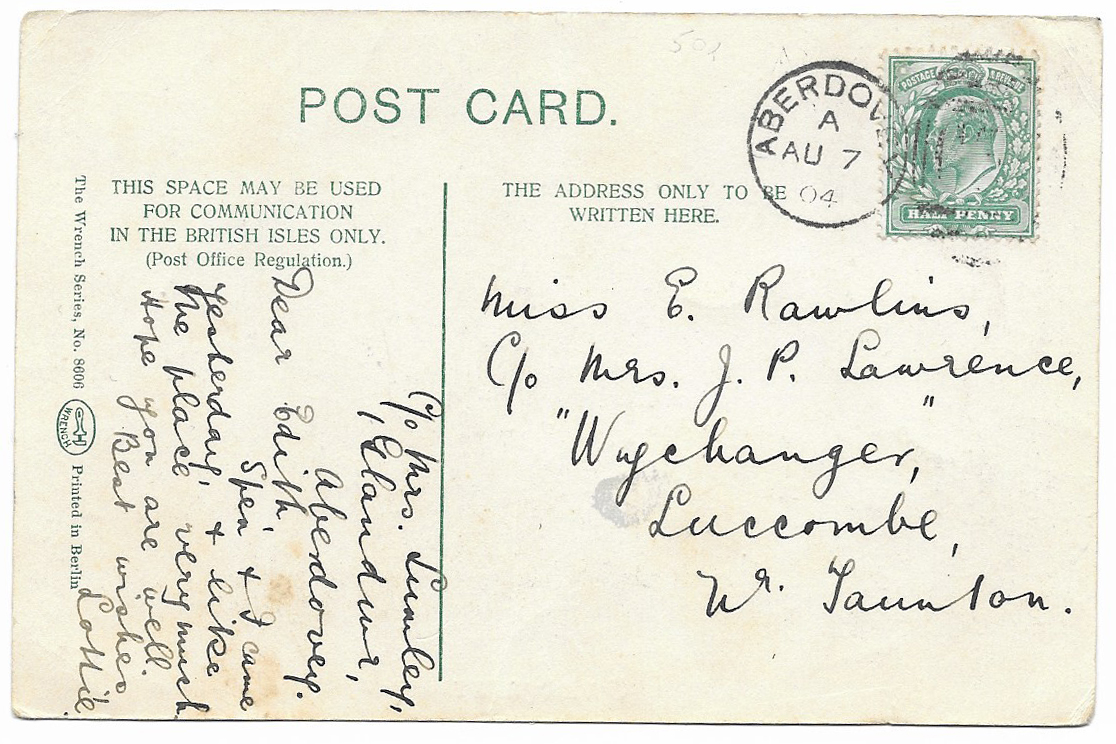 POST CARD.
THIS SPACE MAY BE USED
FOR COMMUNICATION
IN THE BRITISH ISLES ONLY.
(Post Office Regulation.)
THE ADDRESS ONLY TO BE
WRITTEN HERE.
ABERDOVEY
A
AU 7
04
POSTAGE REVENUE
HALF PENNY
Miss E. Rawlins,
C/o Mrs. J. P. Lawrence,
"Wychanger,"
Luccombe,
Nr. Taunton.
C/o Mrs. Lumley,
1, Glandwr,
Aberdovey.
Dear Edith,
Spen & I came
yesterday, & like
the place very much.
Hope you are well.
Best wishes
Lottie.
The Wrench Series, No. 8606
WRENCH
Printed in Berlin